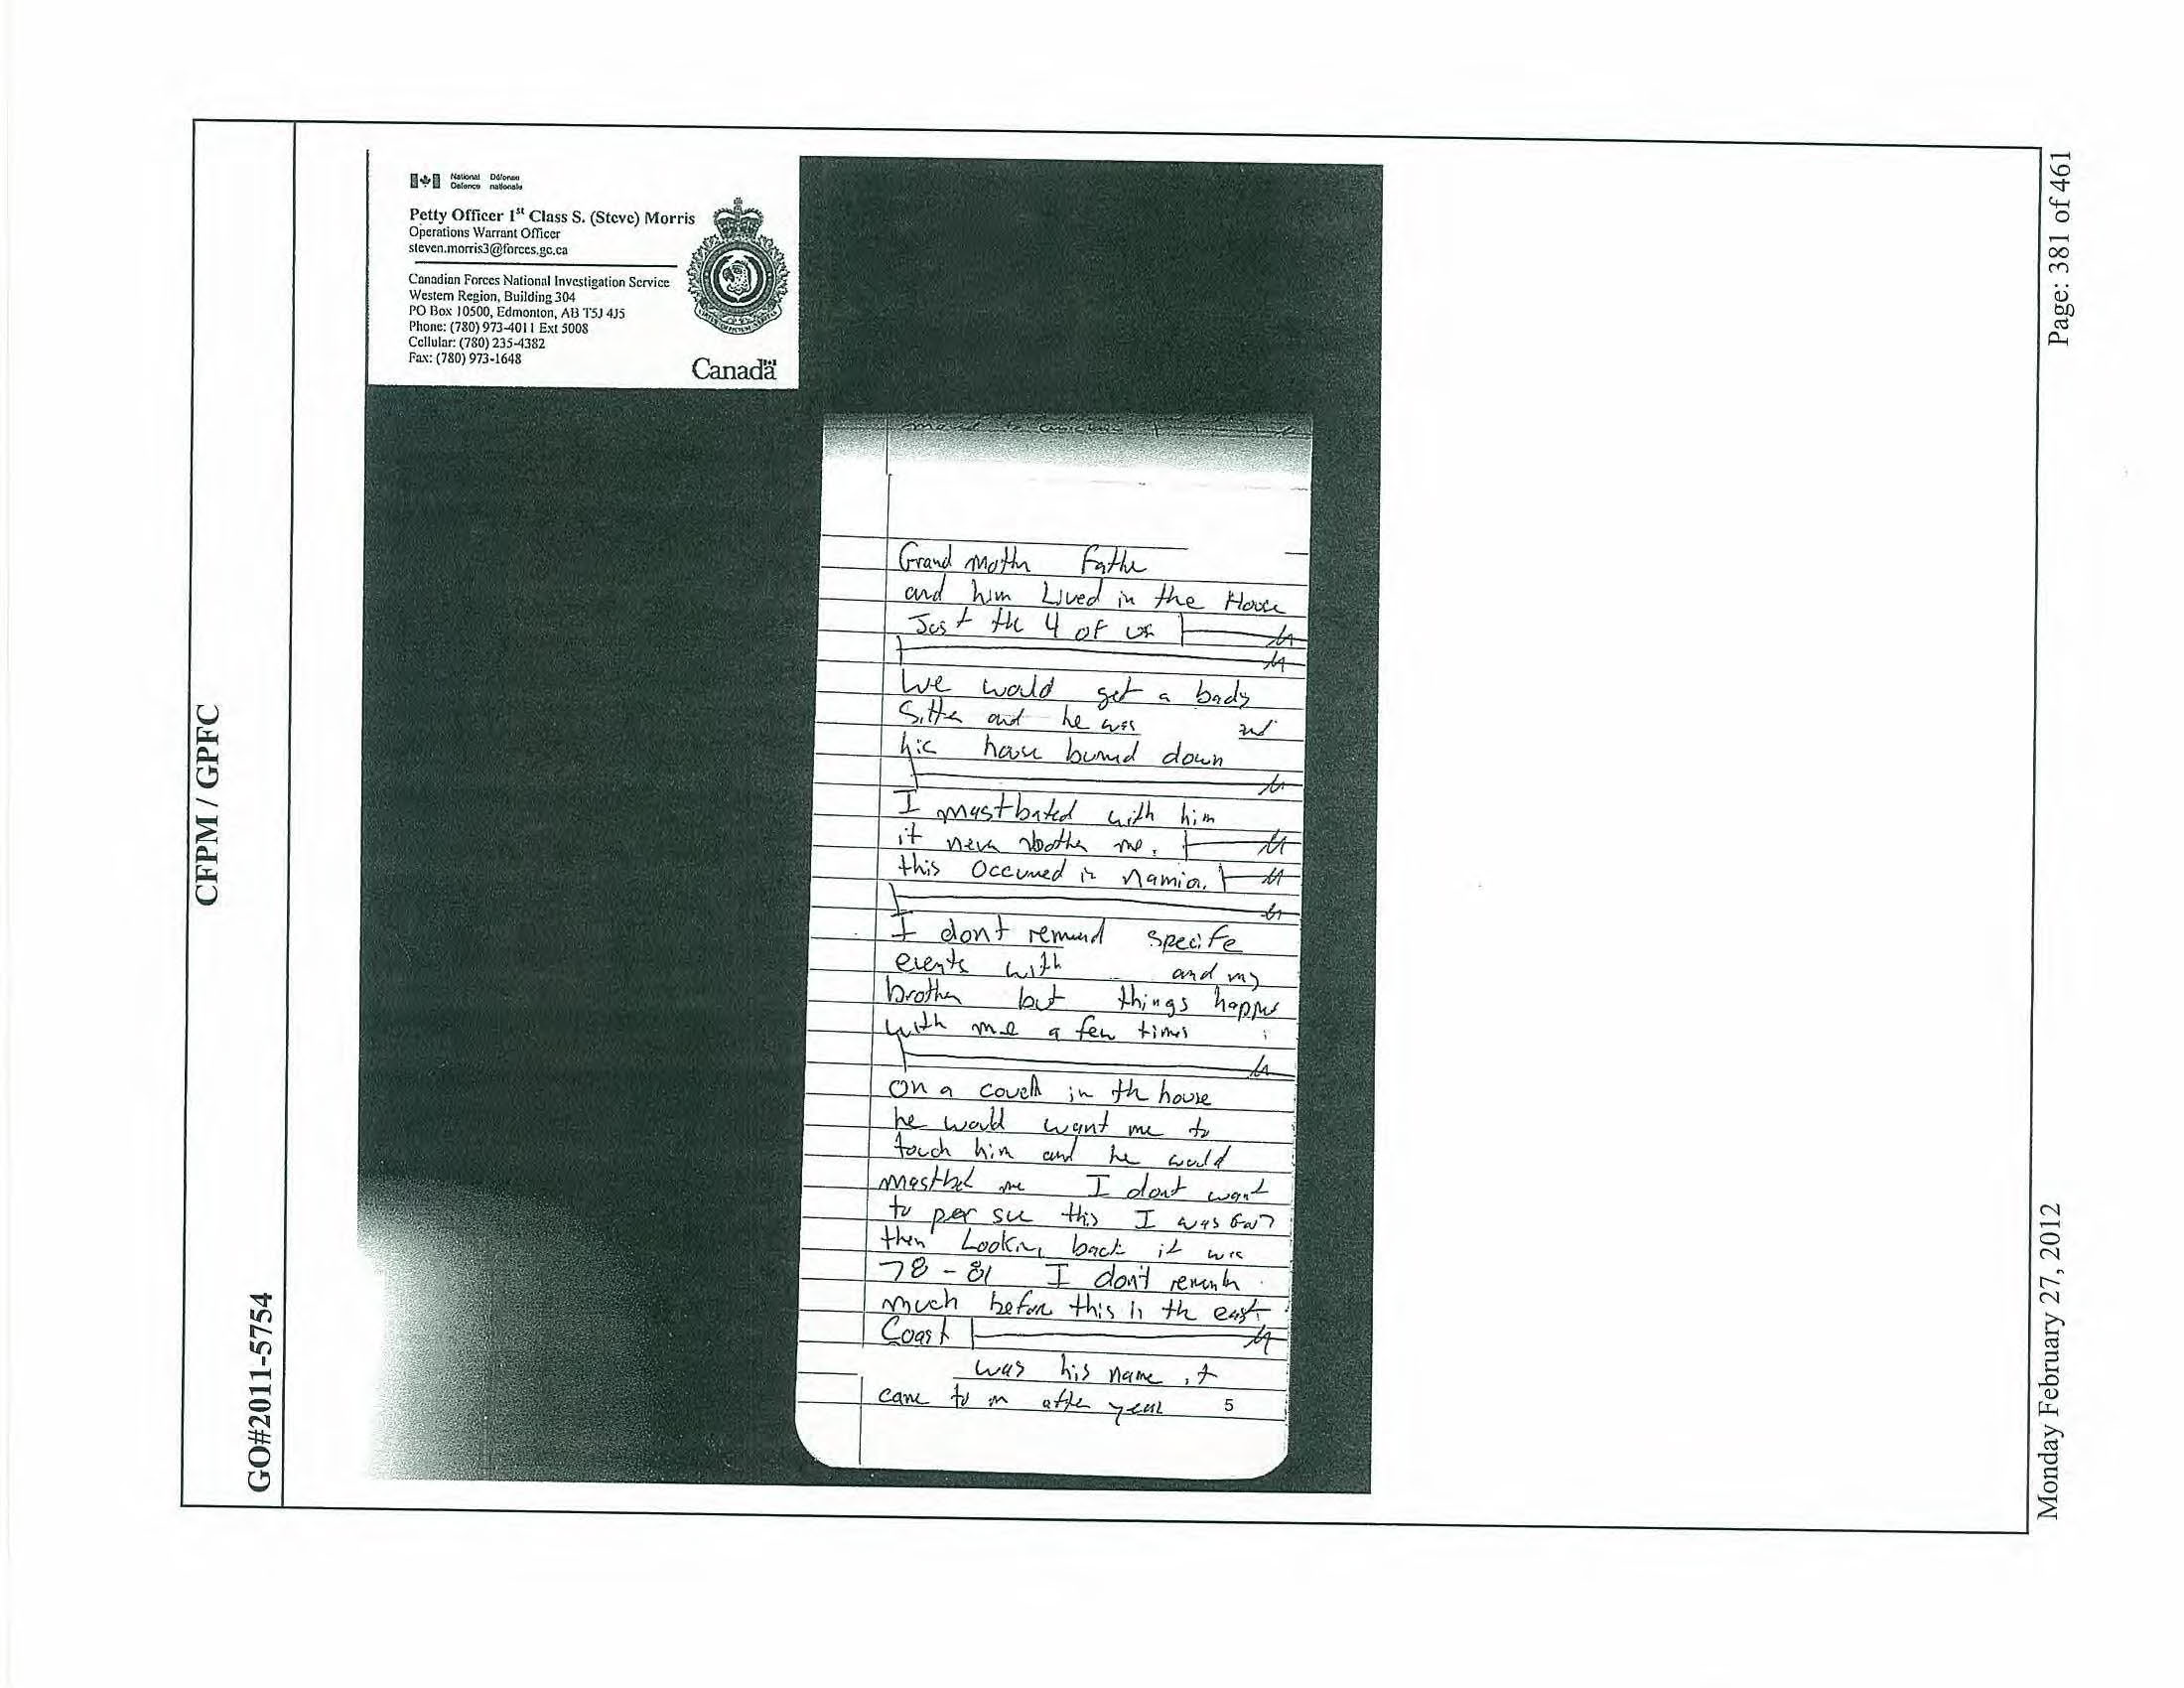 CFPM / GPFC
GO#2011-5754
National Défense
Defence nationale
Petty Officer 1st Class S. (Steve) Morris
Operations Warrant Officer
steven.morris3@forces.gc.ca
Canadian Forces National Investigation Service
Western Region, Building 304
PO Box 10500, Edmonton, AB T5J 4J5
Phone: (780) 973-4011 Ext 5008
Cellular: (780) 235-4382
Fax: (780) 973-1648
Canada
Grand Moth Fathe
and him Lived in the House
Just the 4 of us
We would get a bady
Sitte and he was
his house burned down
I mastbated with him
it neve bother me.
this Occurred in Namia.
I dont remend specife
events with and my
brother but things happe
with me a few times
on a couch in th house
he would want me to
touch him and he would
mastbd me I dont want
to per sue this I was
then Looking back it was
78 - 81 I don't rememb
much before this in the east
Coast
was his name it
came to m afte year 5
Monday February 27, 2012
Page: 381 of 461